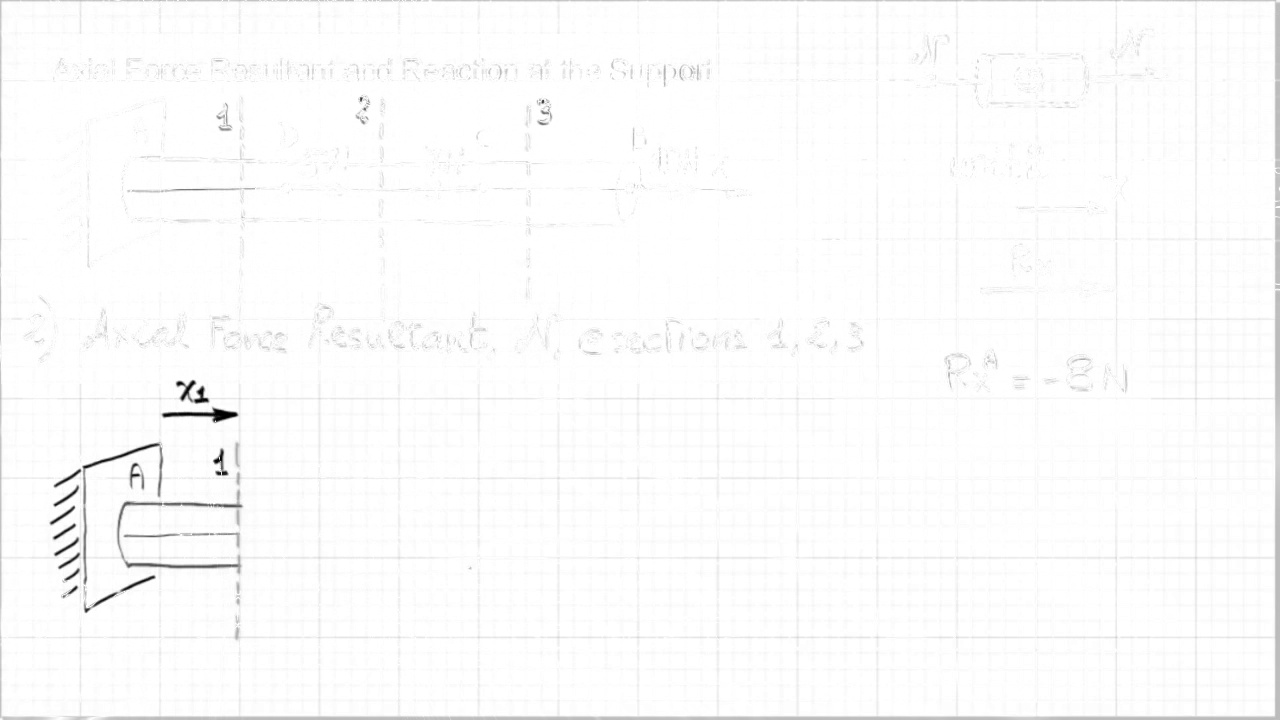 Axial Force Resultant and Reaction at the Support
N N
1 2 3
A D C B
x
Rx
2) Axial Force Resultant, N, @ sections 1, 2, 3
RxA = -8N
x1
1
A